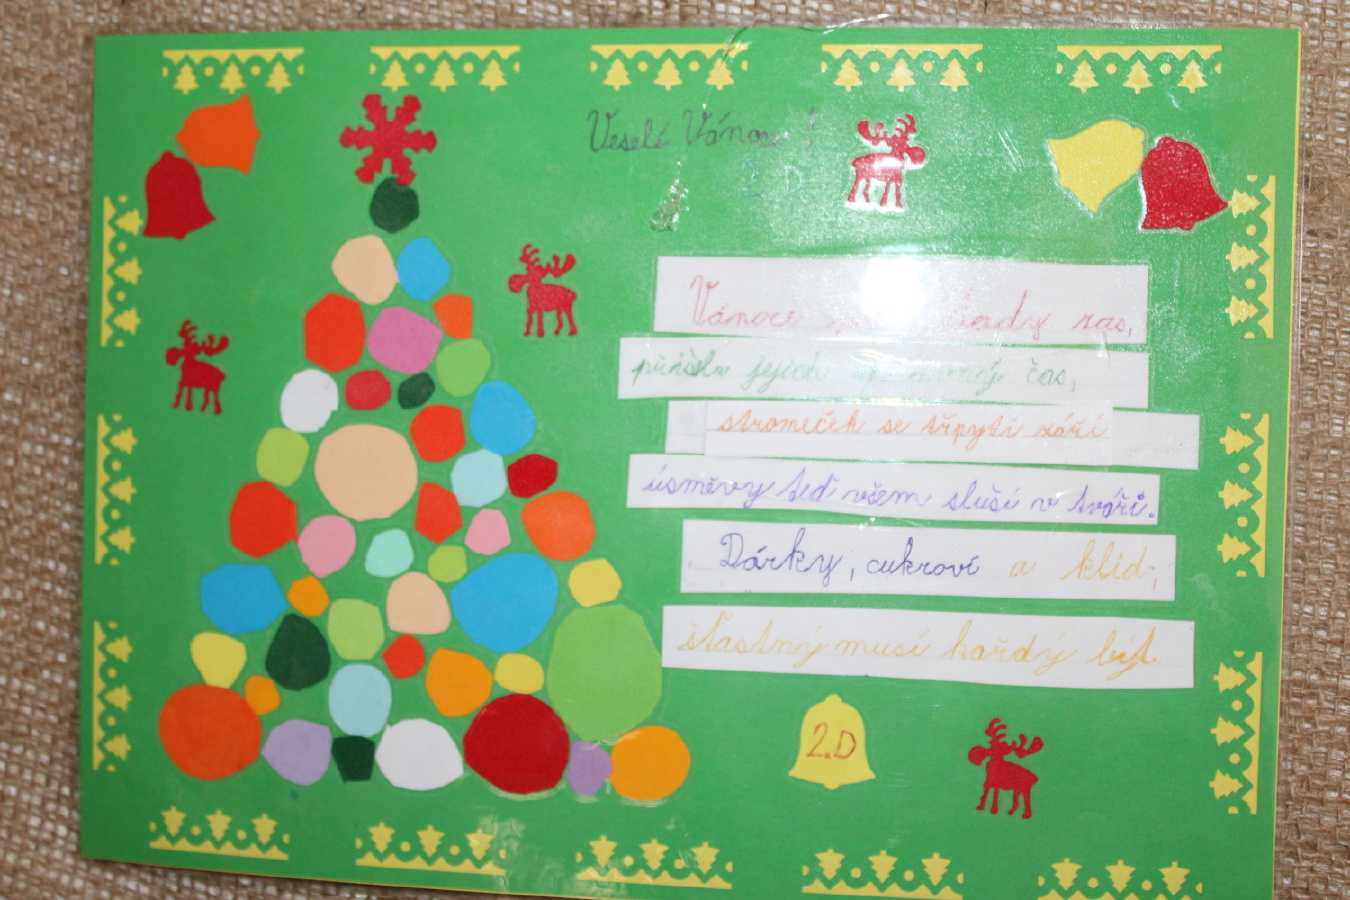 Veselé Vánoce!
2.D
Vánoce jsou tady zas,
přišel jejich správný čas,
stromeček se třpytí září
úsměvy teď všem sluší v tváři.
Dárky, cukroví a klid,
šťastný musí každý být.
2.D